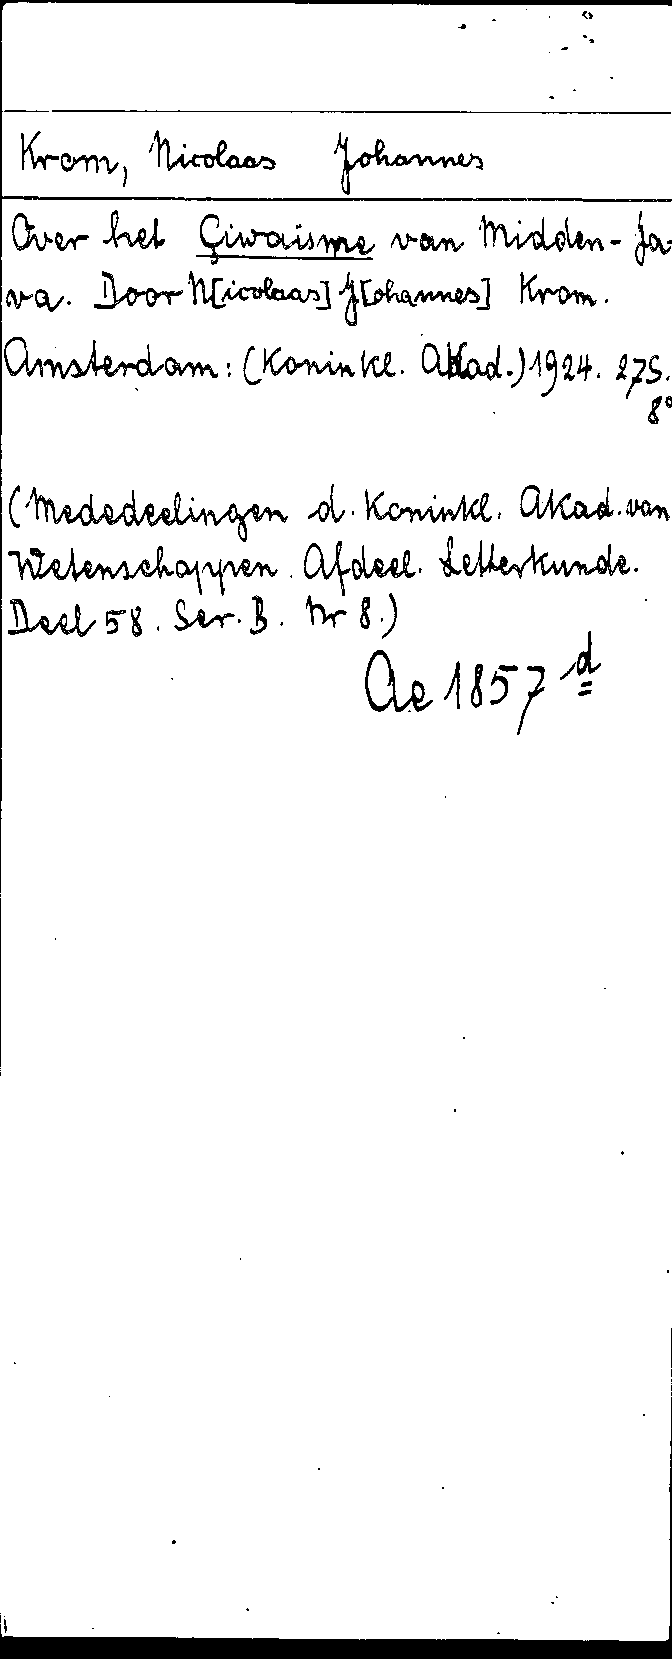 Krom, Nicolaas Johannes
Over het Çiwaisme van Midden-Ja-
va. Door N[icolaas] J[ohannes] Krom.
Amsterdam: (Koninkl. Akad.) 1924. 27 S.
8°
(Mededeelingen d. Koninkl. Akad. van
Wetenschappen. Afdeel. Letterkunde.
Deel 58. Ser. B. Nr 8.)
Ae 1857 d